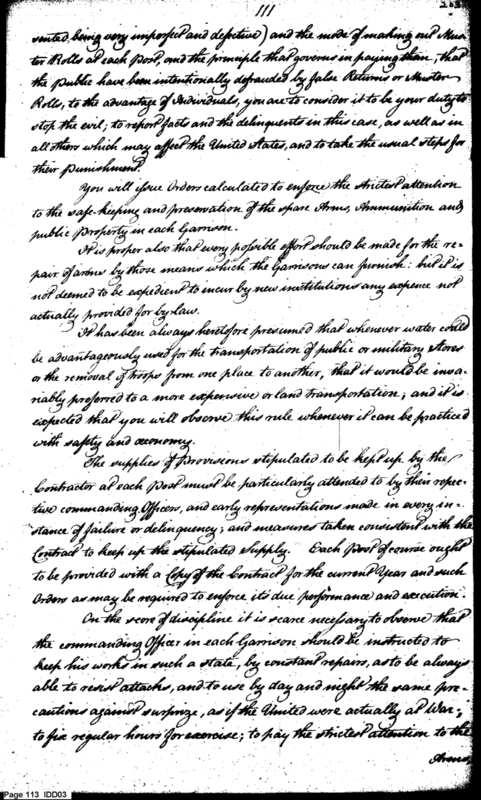 111
sented being very imperfect and defective) and the mode of making out Mus-
ter Rolls at each Post, and the principle that governs in paying them, that
the Public have been intentionally defrauded by false Returns or Muster
Rolls, to the advantage of Individuals, you are to consider it to be your duty to
stop the evil; to report facts and the delinquents in this case, as well as in
all others which may affect the United States, and to take the usual steps for
their Punishment.
You will issue Orders calculated to enforce the strictest attention
to the safe-keeping and preservation of the spare Arms, Ammunition and
public Property in each Garrison.
It is proper also that every possible effort should be made for the re-
pair of arms by those means which the Garrisons can furnish: but it is
not deemed to be expedient to incur by new institutions any expence not
actually provided for by law.
It has been always heretofore presumed that whenever water could
be advantageously used for the transportation of public or military stores
or the removal of troops from one place to another, that it would be inva-
riably preferred to a more expensive or land transportation; and it is
expected that you will observe this rule whenever it can be practiced
with safety and œconomy.
The supplies of Provisions stipulated to be kept up by the
Contractor at each Post must be particularly attended to by their repec-
tive commanding Officers, and early representations made in every in-
stance of failure or delinquency; and measures taken consistent with the
Contract to keep up the stipulated supply. Each Post of course ought
to be provided with a Copy of the Contract for the current Year and such
Orders as may be required to enforce its due performance and execution.
On the score of discipline it is scarce necessary to observe that
the commanding Officer in each Garrison should be instructed to
keep his works in such a state, by constant repairs, as to be always
able to resist attacks, and to use by day and night the same pre-
cautions against surprize, as if the United were actually at War;
to fix regular hours for exercise; to pay the strictest attention to the
Arms,
Page 113 IDD03